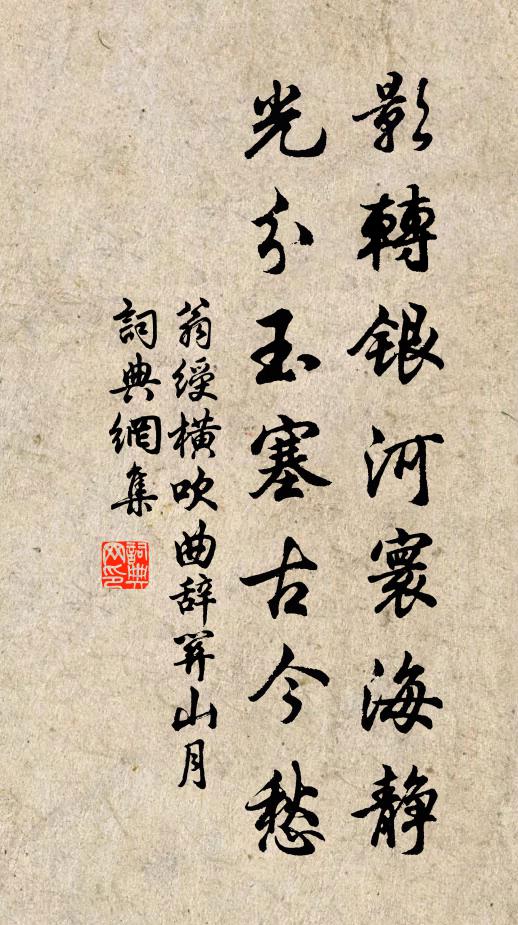 影轉銀河寰海靜
光分玉塞古今愁
翁綬橫吹曲辭關山月
詞典網集
詞典網印